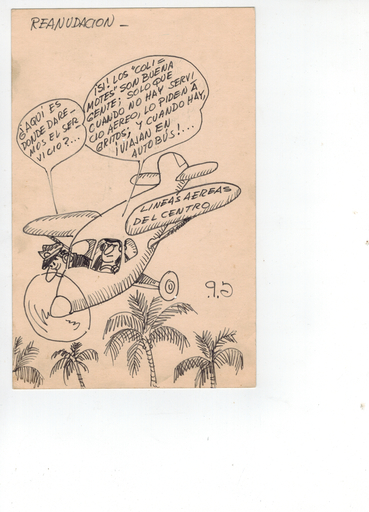 REANUDACION_
¿AQUÍ ES
DONDE DARE-
MOS EL SER
VICIO?...
¡SI! LOS "COLI=
MOTES" SON BUENA
GENTE; SOLO QUE
CUANDO NO HAY SERVI
CIO AEREO, LO PIDEN A
GRITOS; Y CUANDO HAY,
¡VIAJAN EN
AUTOBUS!...
LINEAS AEREAS
DEL CENTRO